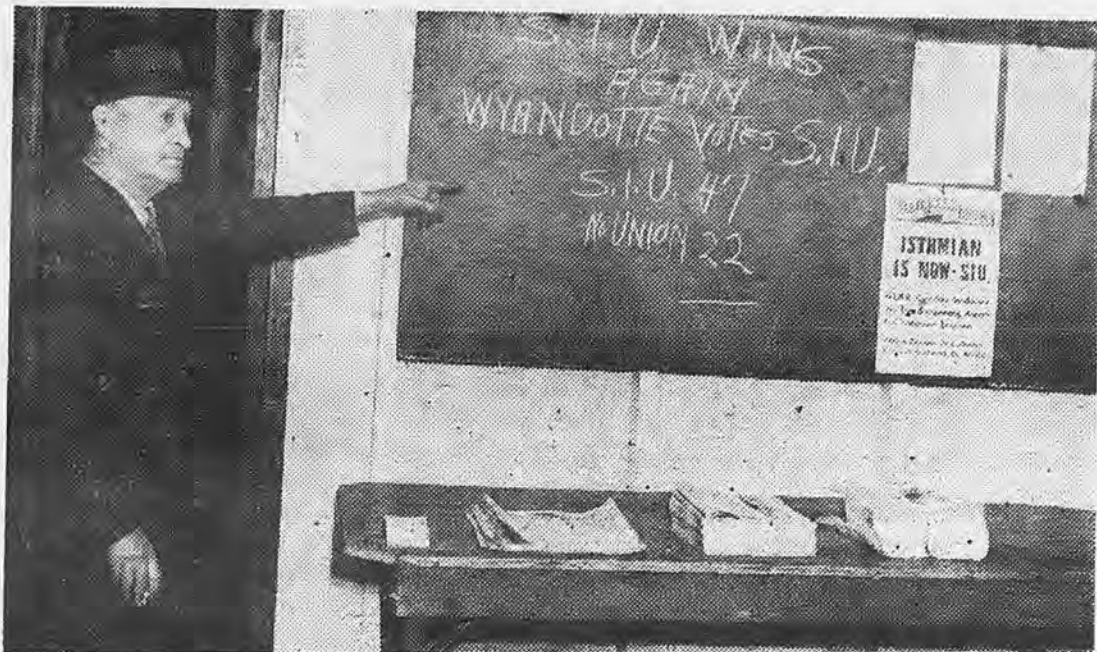 S.I.U. WINS
AGAIN
WYANDOTTE VOTES S.I.U.
S.I.U. 47
NO UNION 22
ISTHMIAN
IS NOW-SIU